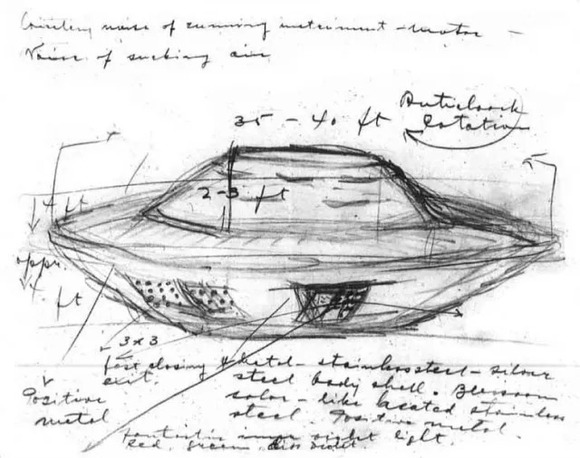 noise of running instrument - motor -
Noise of sucking air
35 - 40 ft
Anticlock
rotation
2-3 ft
4 ft
appr.
4 ft
3 x 3
fast closing
exit.
Metal - stainless steel - silver
steel body shell.
color - like heated stainless
steel. Positive metal.
Positive
metal
inner light.
red, green,